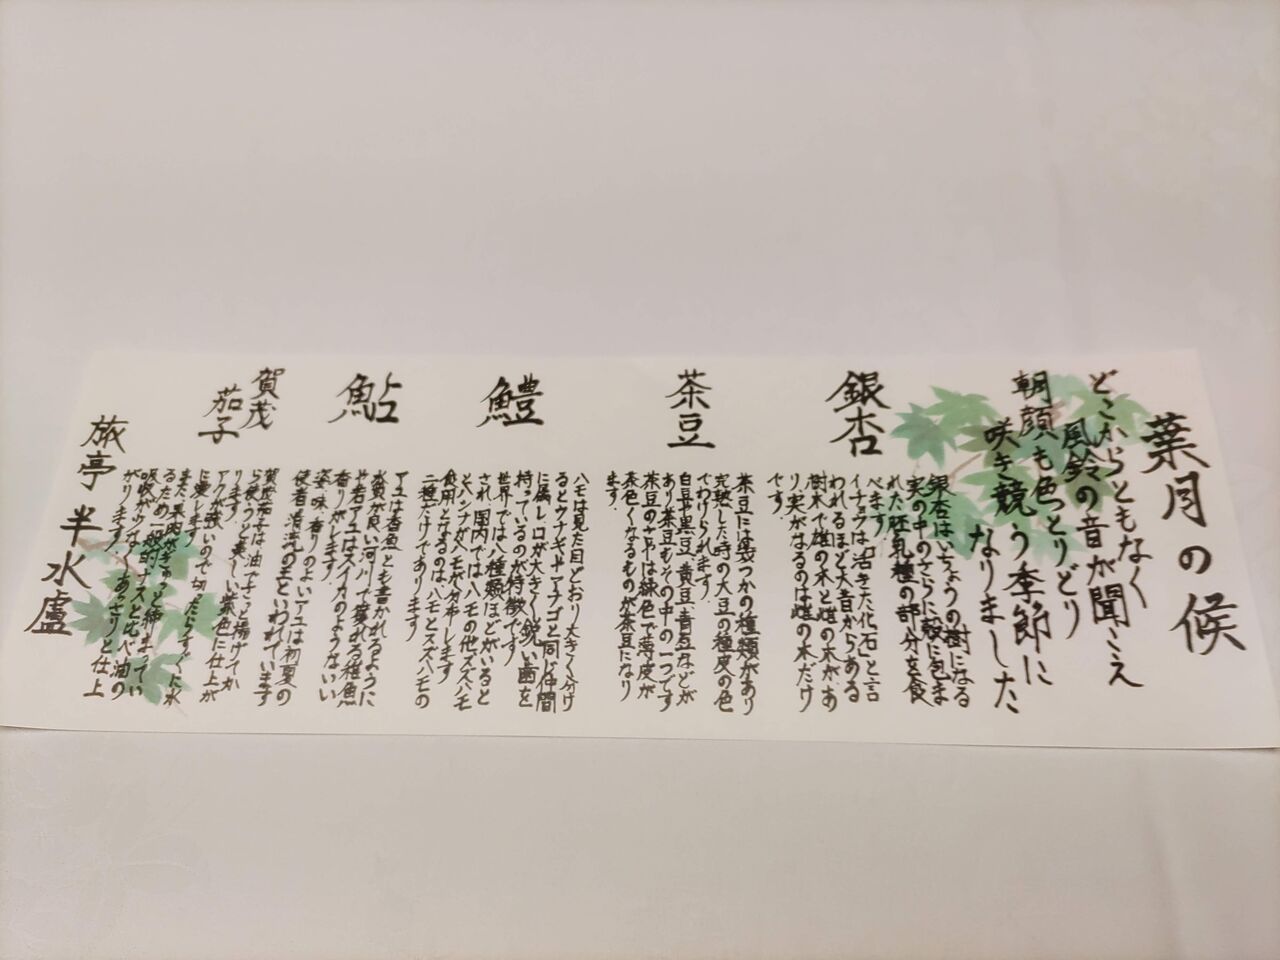 葉月の候
どこからともなく
風鈴の音が聞こえ
朝顔も色っとりどり
咲き競う季節に
なりました
銀杏
銀杏はいちょうの樹になる
実の中のさらに殻に包ま
れた胚乳種の部分を食
べます
イチョウは「活きた化石」と言
われるほど大昔からある
樹木で雄の木と雌の木があ
り、実がなるのは雌の木だけ
です。
茶豆
茶豆には幾つかの種類があり
完熟した時の大豆の種皮の色
でわけられます。
白豆や黒豆、黄豆、青豆などが
あり茶豆もその中の一つです
茶豆のさやは緑色で薄皮が
茶色くなるものが茶豆になり
ます。
鱧
ハモは見た目どおり大きく分け
るとウナギやアナゴと同じ仲間
に属し口が大きく鋭い歯を
持っているのが特徴です。
世界では八種類ほどがいると
され、国内ではハモの他ズズハモ
とハシナガハモが分布します
食用とするのは、ハモとスズハモの
二種だけであります
鮎
アユは香魚とも書かれるように
水質が良い河川で獲れる稚魚
や若アユはスイカのようないい
香りがします。
姿・味・香りのよいアユは初夏の
使者、清流の王といわれています
賀茂
茄子
賀茂茄子は油でさっと揚げてか
ら使うと美しい紫色に仕上が
ります。
アクが強いので切ったらすぐに水
に浸します
また果肉がきゅっと締まってい
るため一般的ナスと比べ油の
吸収が少なくあっさりと仕上
がります。
旅亭 半水盧